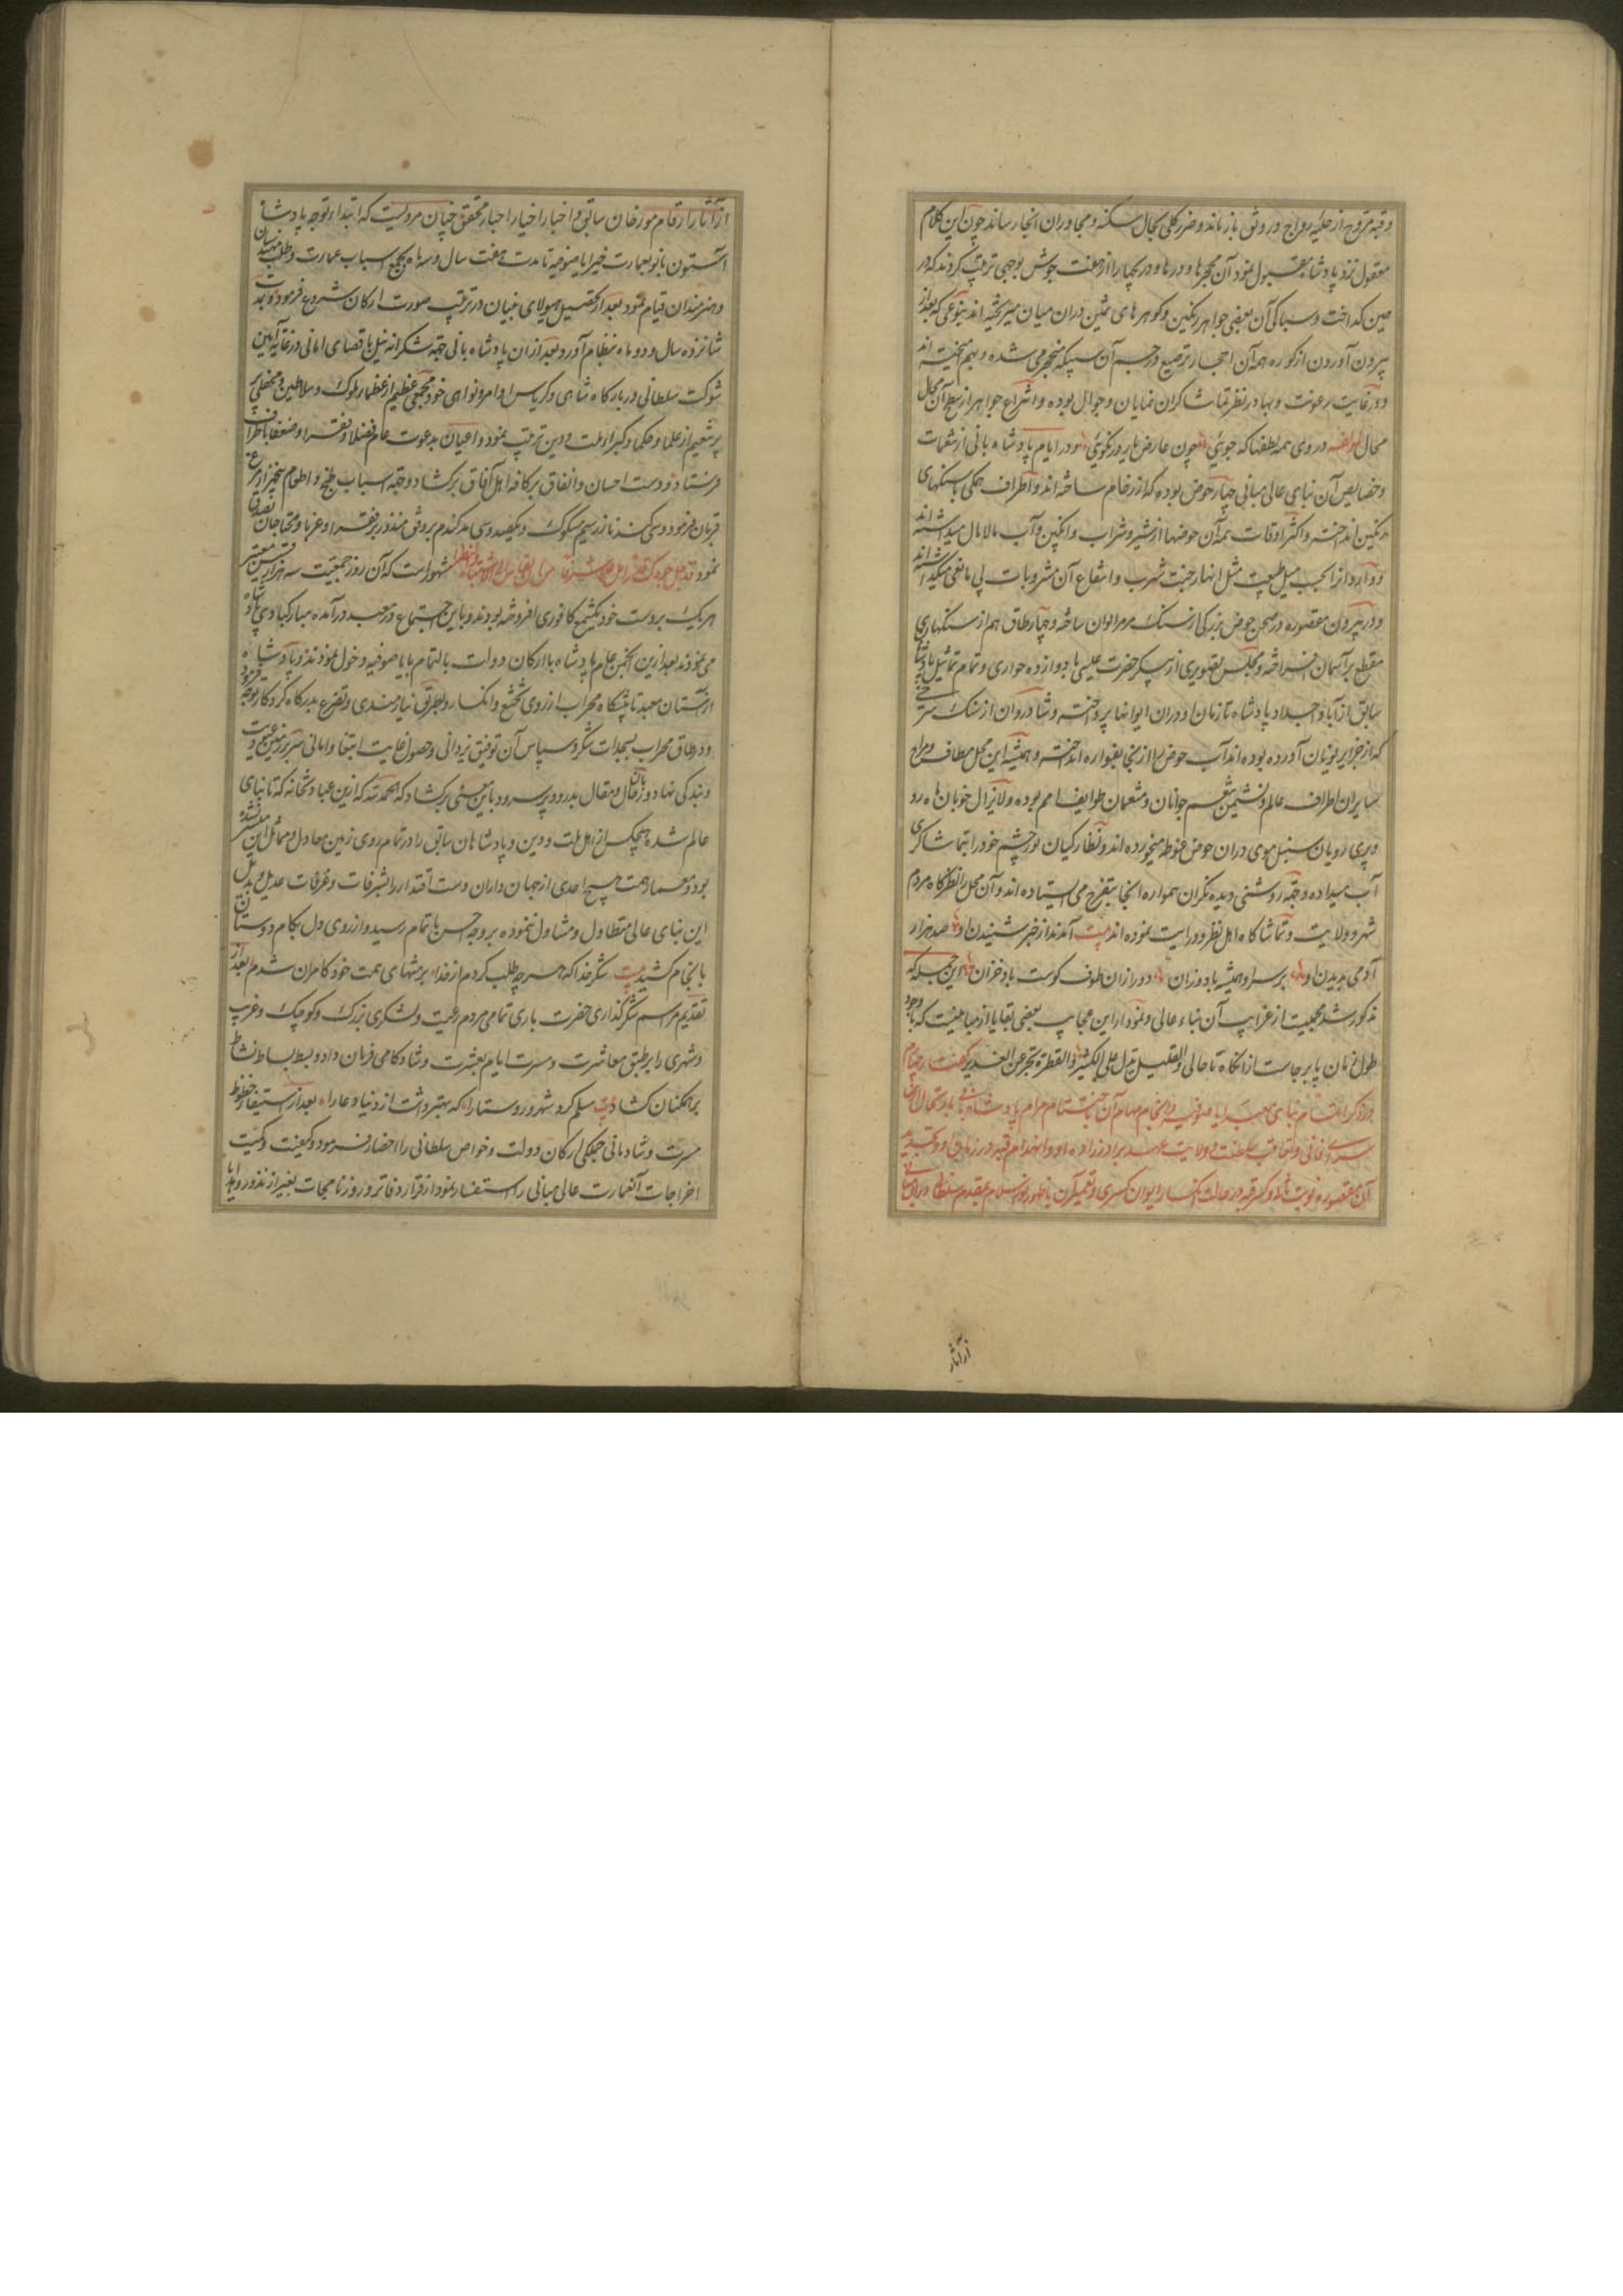 وقبه مروج از حلیه رواج و رونق باز ماند و ضرر کلی بحال سکنه و مجاوران انجا رساند چون این کلام
معقول نزد پادشاه مقبول نمود آن محجرها و درها و دریچها را از هفت جوش بوجهی ترتیب کردند که در
حین کداخت و سباکی آن بعضی جواهر رنکین و کوهرهای ثمین دران میان میریخته اند بنوعی که بعد از
بیرون آوردن از کوره همه آن احجار ترصیع در جسم آن سبیکه منجر می شده و بهم میخته اند
و در غایت رعونت و بها در نظر تماشاکران نمایان و جوال بوده و انتزاع جواهر از سطح آن محل
محال لمؤلفه در وی همه لطفها که جوئی چون عارض یار در نکوئی و در ایام پادشاه بانی از متممات
و خصایص آن بنای عالی مبانی چهار حوض بوده که از رخام ساخته اند و اطراف همکی بسنکهای
رنکین انداخته و اکثر اوقات همه آن حوضها از شیر و شراب و انکبین و آب مالامال میداشته اند
و وارد انرا بحسب میل طبیعت مثل انهار جنت شرب و انتفاع آن مشروبات بی مانعی میکذاشته اند
و در بیرون مقصوره در صحن حوض بزرکی از سنک مرمر الوان ساخته و چهار طاق هم از سنکهای
مقطع بر آسمان افراخته و مجلس تصویری از پیکر حضرت عیسی با دوازده حواری و تمام تماثیل پادشاهان
سابق از آبا و اجداد پادشاه تا زمان او دران ایوانها پرداخته و شادروان از سنک سرخی
که از جزایر یونان آورده بوده اند آب حوض را ازینجا بفواره انداخته و همیشه این محل مطاف و مزار
سایران اطراف عالم و نشیمن تنعم جوانان و متنعمان طوایف امم بوده و لایزال خوبان ماه رو
و پری رویان سنبل موی دران حوض غوطه میخورده اند و نظارکیان نور چشم خود را بتماشاکری
آب میداده و جهة روشنی دیده نکران همواره انجا بتفرج می ایستاده اند و آن محل را نظرکاه مردم
شهر و ولایت و تماشاکاه اهل نظر و درایت نموده اند بیت آمدند از خبر شنیدن او صد هزار
آدمی بدیدن او بر سر او همیشه باد وزان دور ازان طوف کوست باد خزان این جمله که
مذکور شد عجیبیست از غرایب آن بناء عالی و نمودار این عجایب بعضی بقایا از مبانیست که با وجود
طول زمان پا برجاست از انکاه تا حالی و القلیل یدل علی الکثیر و القطرة تخبر عن الغدیر کفتار چهارم
در ذکر اتمام بنای معبد ایا صوفیه و انجام مهام آن بحسن اهتمام مرام پادشاه بانی بارتحال ازین
سرای فانی و تعاقب سلطنت و ولایت عهد برادرزاده او و انهدام قبه در زمان او و تجدید
آن مقصوره نوبت
از آثار
از آثار ارقام مورخان سابق و اخبار اخیار احبار محقق چنان مرویست که ابتداء توجه پادشاه
آستونیانو بعمارت خیر ایا صوفیه تا مدت هفت سال و سه ماه بجمع اسباب عمارت و طلب مهندسان
و هنرمندان قیام نمود بعد از تحصیل هیولای بنیان در ترتیب صورت ارکان شروع فرمود و بمدت
شانزده سال و دو ماه بنظام آورد بعد ازان پادشاه بانی جهة شکرانه نیل باقصای امانی در غایة آیین
شوکت سلطانی در بارکاه شاهی و کریاس اوامر و نواهی خود مجمعی عظیم از عظما ملوک و سلاطین و محفلی
پر تنعیم از علما و حکما و کبراء ملت و دین ترتیب نمود و اعیان بدعوت عام فضلا و فقرا و ضعفا باطراف
فرستاد و دست احسان و انفاق بر کافه اهل آفاق برکشاد و جهة اسباب طبخ و اطعام
قربان فرمود و سی من زر سیم مسکوک و یکصد و سی مد کندم بر وفق منذور بر فقرا و غربا و محتاجان تصدق
نمود مشهور است که آن روز جمعیت سه هزار
هر یک بدست خود یک شمع کافوری افروخته بودند و باین اجتماع در معبد درآمده مبارکبادی پادشاه
می نمودند بعد ازین انجمن عام پادشاه با ارکان دولت بالتمام بایا صوفیه دخول نمودند و پادشاه
از آستان معبد تا پیشکاه محراب از روی تخشع و انکسار و بطرق نیازمندی و تضرع بدرکاه کردکار توجه فرمود
و در طاق محراب بسجدات شکر و سپاس آن توفیق یزدانی و حصول غایت ابتغا و امانی سر بر زمین عبودیت
و بندکی نهاد و زبان حال و مقال بدرود بر سرود باین معنی برکشاد که الحمد لله که ازین عبادتخانه که تا بنای
عالم شده هیچکس از اهل ملت و دین و پادشاهان سابق را در تمام روی زمین معادل و مماثل این میسر نشده
بود و معمار همت هیچ احدی از جهان داران دست اقتدار را بشرفات و غرفات عدیل و بدیل
این بنای عالی متطاول و متناول ننموده بر وجه احسن باتمام رسید و از روی دل بکام دوستان
بانجام کشید بیت شکر خدا که هر چه طلب کردم از خدا بر منتهای همت خود کامران شدم بعد از
تقدیم مراسم شکرکذاری حضرت باری تمامی مردم رعیت و لشکری بزرک و کوچک و غریب
و شهری را بر طبق معاشرت و مسرت ایام بعشرت و شادکامی فرمان داد و بسط بساط نشاط
بر همکنان کشاد بیت سلم کرد شهر و روستا را که بهتر داشت از دنیا دعا را بعد از استیفاء حظوظ
مسرت و شادمانی جملکی ارکان دولت و خواص سلطانی را احضار فرمود و کیفیت و کمیت
اخراجات آنعمارت عالی مبانی را استفسار نمود از قرار دفاتر و روزنامجات بغیر از نذور و هدایا